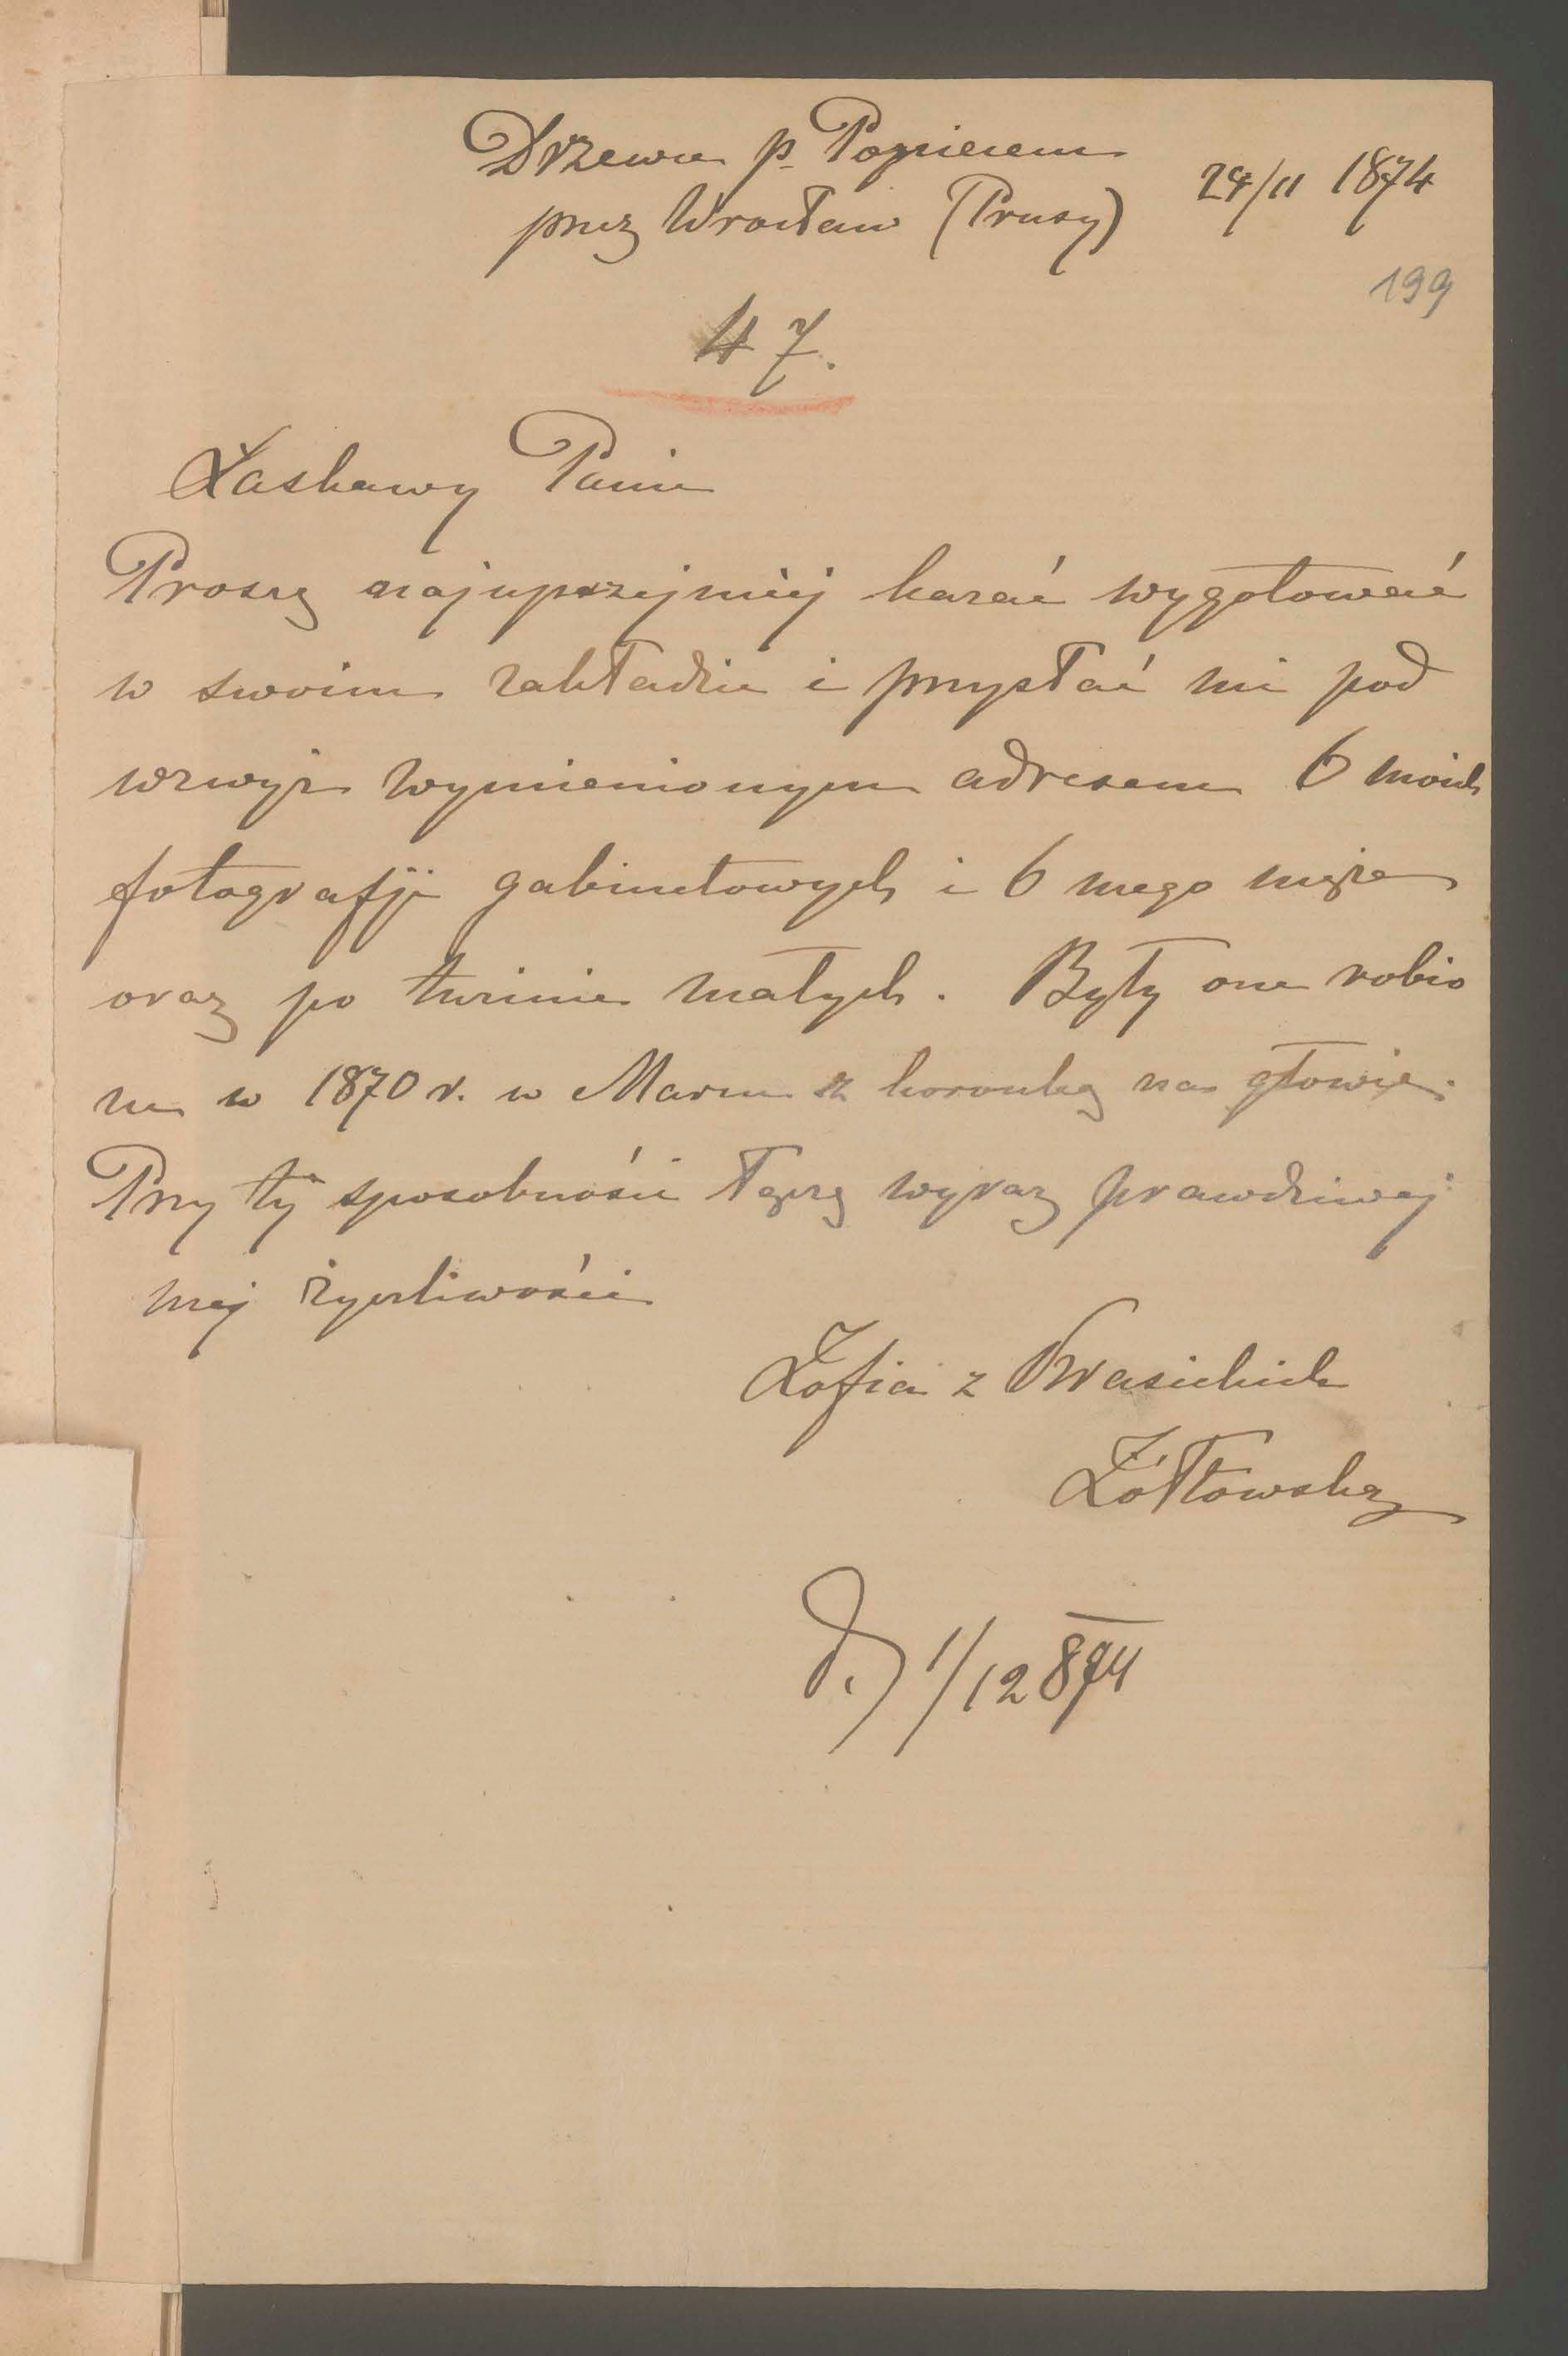 Drzewce p. Poniecem
przez Wrocław (Prusy) 24/11 1874
199
47.
Łaskawy Panie
Proszę najuprzejmiéj kazać wygotować
w swoim zakładzie i przysłać mi pod
wzwyż wymienionym adresem 6 moich
fotografji gabinetowych i 6 mego męża
oraz po tuzinie małych. Były one robio
ne w 1870 r. w Marcu z koronką na głowie.
Przy téj sposobności łączę wyraz prawdziwej
mej życzliwości
Zofia z Kwasickich
Żółtowska
d. 1/12 874